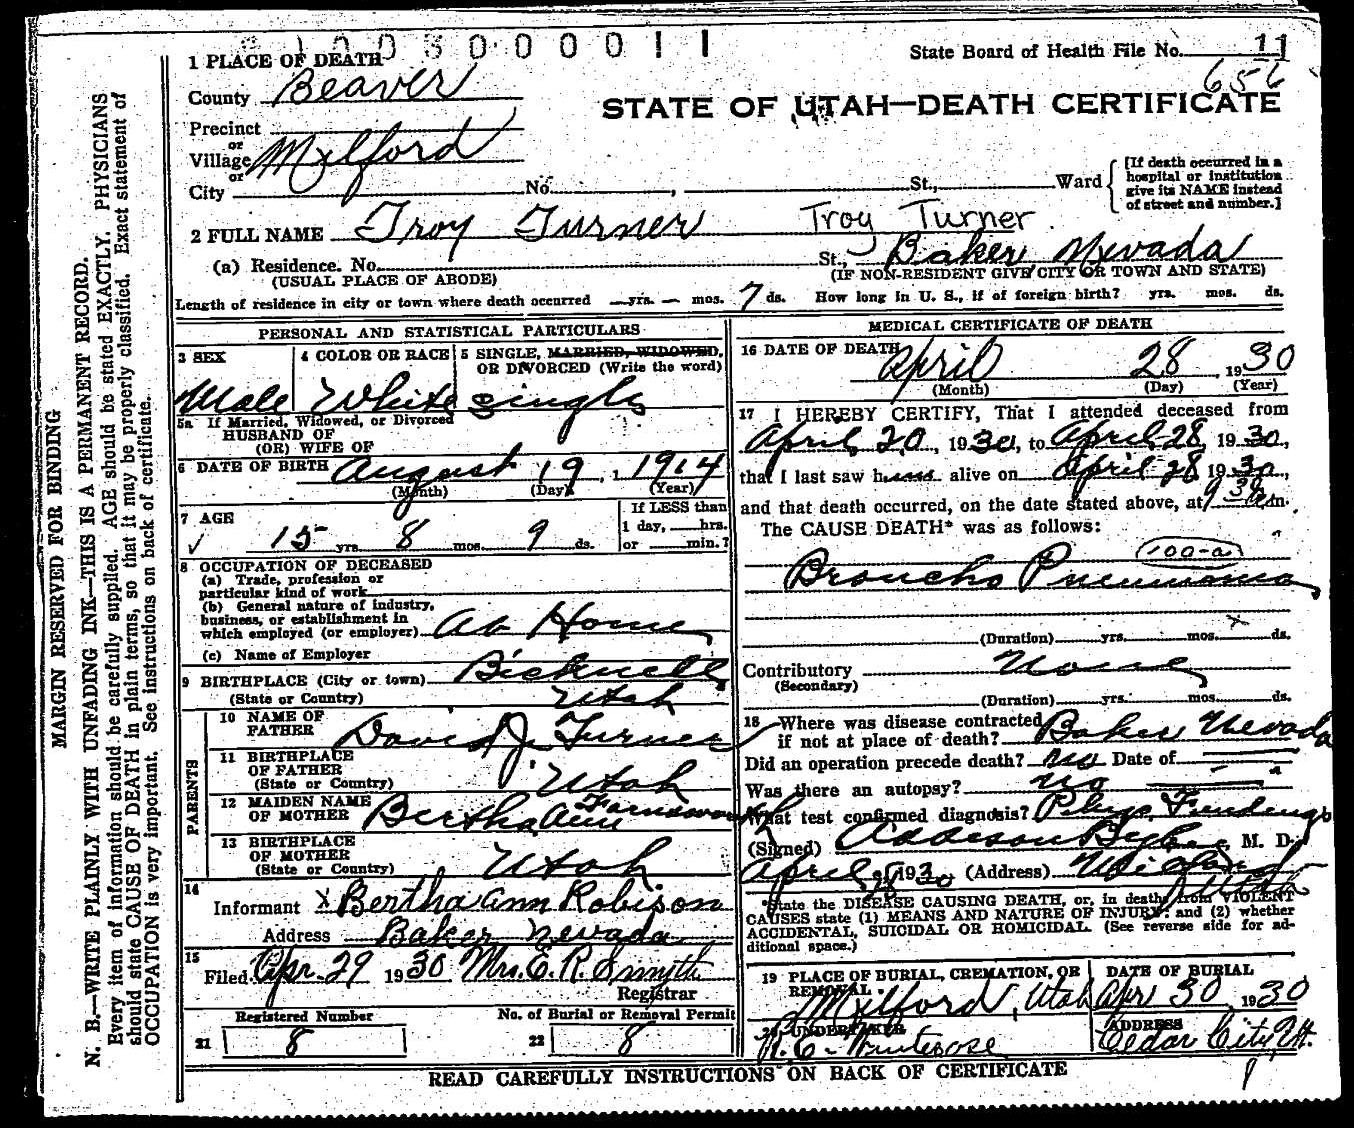 0 0 0 0 1 1
State Board of Health File No. 11
656
1 PLACE OF DEATH
County Beaver
STATE OF UTAH—DEATH CERTIFICATE
Precinct
or
Village Milford
or
City No. , St., Ward
[If death occurred in a hospital or institution give its NAME instead of street and number.]
2 FULL NAME Troy Turner Troy Turner
(a) Residence. No. St., Baker Nevada
(USUAL PLACE OF ABODE) (IF NON-RESIDENT GIVE CITY OR TOWN AND STATE)
Length of residence in city or town where death occurred — yrs. — mos. 7 ds. How long in U. S., if of foreign birth? yrs. mos. ds.
PERSONAL AND STATISTICAL PARTICULARS
3 SEX 4 COLOR OR RACE 5 SINGLE, MARRIED, WIDOWED,
OR DIVORCED (Write the word)
Male White Single
5a If Married, Widowed, or Divorced
HUSBAND OF
(OR) WIFE OF
6 DATE OF BIRTH August 19, 1914
(Month) (Day) (Year)
7 AGE
15 yrs. 8 mos. 9 ds.
If LESS than
1 day, hrs.
or min.?
8 OCCUPATION OF DECEASED
(a) Trade, profession or
particular kind of work
(b) General nature of industry,
business, or establishment in
which employed (or employer) At Home
(c) Name of Employer
9 BIRTHPLACE (City or town) Bicknell
(State or Country) Utah
PARENTS
10 NAME OF
FATHER David J. Turner
11 BIRTHPLACE
OF FATHER
(State or Country) Utah
12 MAIDEN NAME
OF MOTHER Bertha Ann Farnsworth
13 BIRTHPLACE
OF MOTHER
(State or Country) Utah
14
Informant x Bertha Ann Robison
Address Baker Nevada
15
Filed Apr. 29 1930 Mrs. E. R. Smyth
Registrar
Registered Number No. of Burial or Removal Permit
21 8 22 8
MEDICAL CERTIFICATE OF DEATH
16 DATE OF DEATH
April 28, 1930
(Month) (Day) (Year)
17 I HEREBY CERTIFY, That I attended deceased from
April, 20, 1930, to April 28, 1930,
that I last saw him alive on April 28 1930,
and that death occurred, on the date stated above, at 9 30 a.m.
The CAUSE DEATH* was as follows:
100-a
Broncho Pneumonia
(Duration) yrs. mos. x ds.
Contributory None
(Secondary)
(Duration) yrs. mos. ds.
18 Where was disease contracted
if not at place of death? Baker Nevada
Did an operation precede death? no Date of
Was there an autopsy? no
What test confirmed diagnosis? Phys. Findings
(Signed) Addison , M. D.
April, 28 1930 (Address) Milford
Utah
*State the DISEASE CAUSING DEATH, or, in deaths from VIOLENT
CAUSES state (1) MEANS AND NATURE OF INJURY: and (2) whether
ACCIDENTAL, SUICIDAL OR HOMICIDAL. (See reverse side for ad-
ditional space.)
19 PLACE OF BURIAL, CREMATION, OR
REMOVAL
Milford, Utah
DATE OF BURIAL
Apr 30 1930
20 UNDERTAKER
ADDRESS
Cedar City, Ut.
READ CAREFULLY INSTRUCTIONS ON BACK OF CERTIFICATE
MARGIN RESERVED FOR BINDING
N. B.—WRITE PLAINLY WITH UNFADING INK—THIS IS A PERMANENT RECORD.
Every item of information should be carefully supplied. AGE should be stated EXACTLY. PHYSICIANS
should state CAUSE OF DEATH in plain terms, so that it may be properly classified. Exact statement of
OCCUPATION is very important. See instructions on back of certificate.